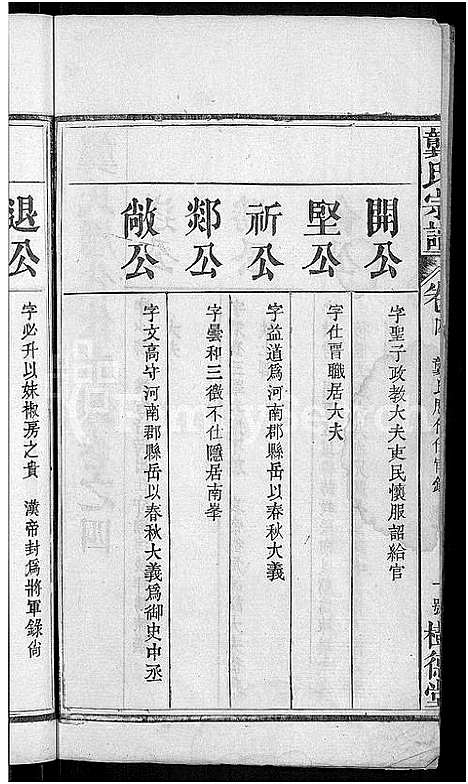 龔氏宗譜
龔氏歷代仕官錄
樹德堂
開公
字聖于政教大夫吏民懷服詔給官
堅公
字仕晋職居大夫
祈公
字益道為河南郡縣岳以春秋大義
郯公
字曇和三徵不仕隱居南峯
敞公
字文高守河南郡縣岳以春秋大義為御史中丞
退公
字必升以妹椒房之貴 漢帝封為將軍錄尙